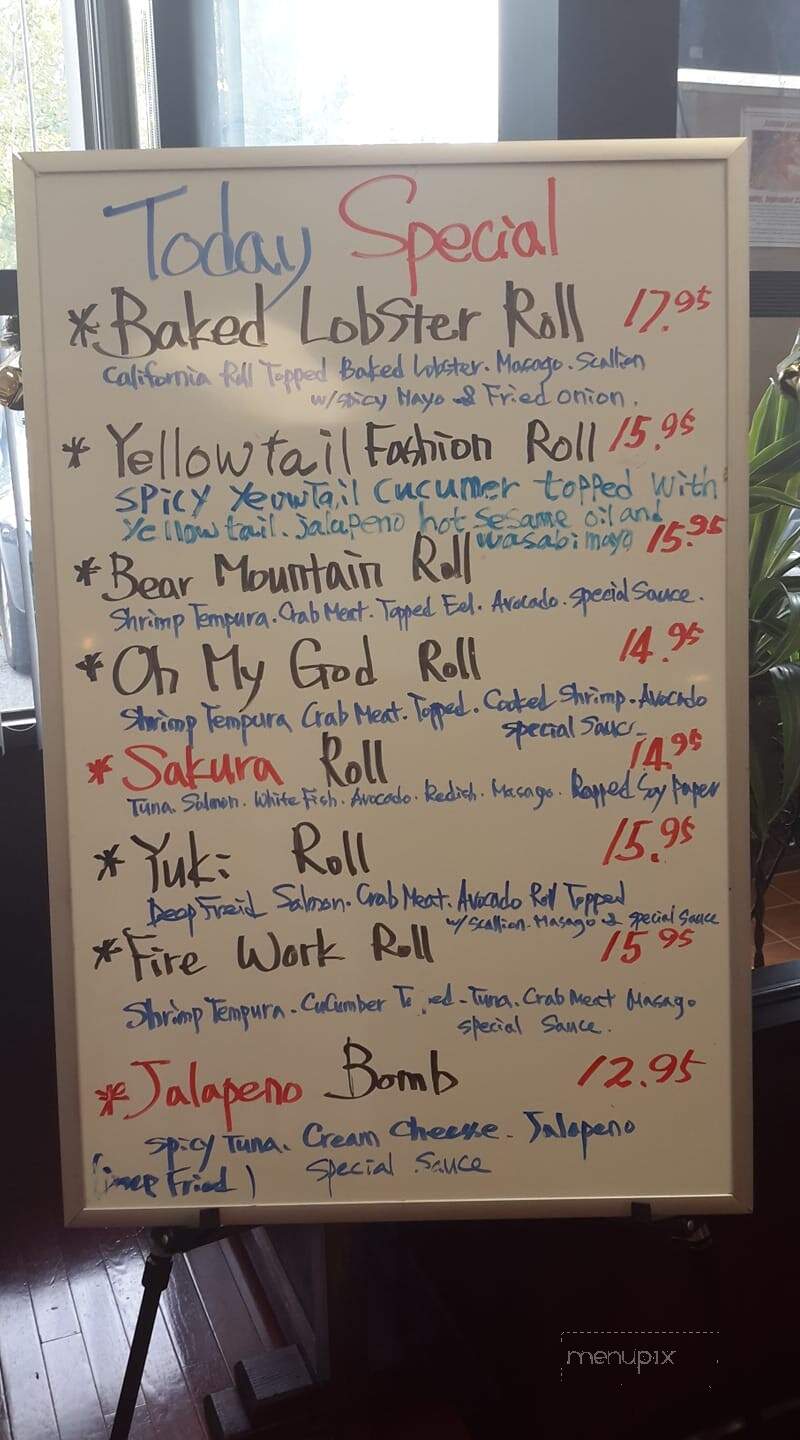 Today Special
* Baked Lobster Roll 17.95
California Roll Topped Baked Lobster. Masago. Scallion
w/spicy Mayo & Fried onion.
* Yellowtail Fashion Roll 15.95
Spicy Yeowtail Cucumer topped with
Yellowtail. jalapeno hot sesame oil and
wasabi mayo 15.95
* Bear Mountain Roll
Shrimp Tempura. Crab Meat. Topped Eel. Avocado. special Sauce.
* Oh My God Roll 14.95
Shrimp Tempura Crab Meat. Topped. Cooked Shrimp. Avocado
special Sauce
* Sakura Roll 14.95
Tuna. Salmon. White Fish. Avocado. Redish. Masago. Rapped Soy Paper
* Yuki Roll 15.95
Deep Freid Salmon. Crab Meat. Avocado Roll Topped
w/ Scallion. Masago & special Sauce
* Fire Work Roll 15.95
Shrimp Tempura. CuCumber Tuna. Crab Meat Masago
special Sauce.
* Jalapeno Bomb 12.95
Spicy Tuna. Cream Cheese. Jalapeno
(Deep Fried) special Sauce
menupix